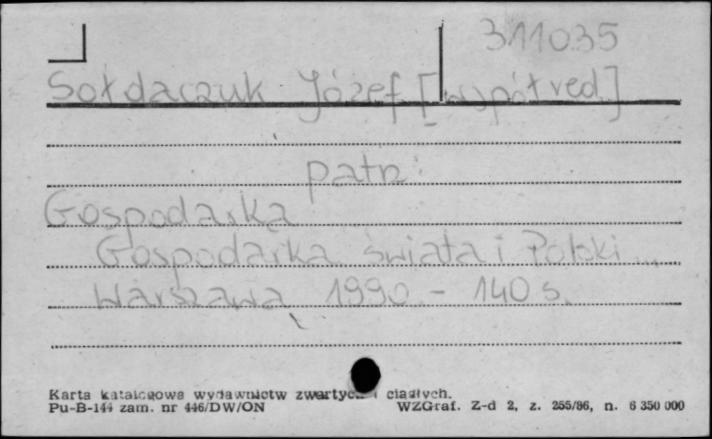 311035
Sołdaczuk Józef [współred.]
patrz:
Gospodarka
Gospodarka świata i Polski...
Warszawa 1990. - 140 s.
Karta katalogowa wydawnictw zwartych i ciągłych.
Pu-B-144 zam. nr 446/DW/ON WZGraf. Z-d 2, z. 255/86, n. 6 350 000